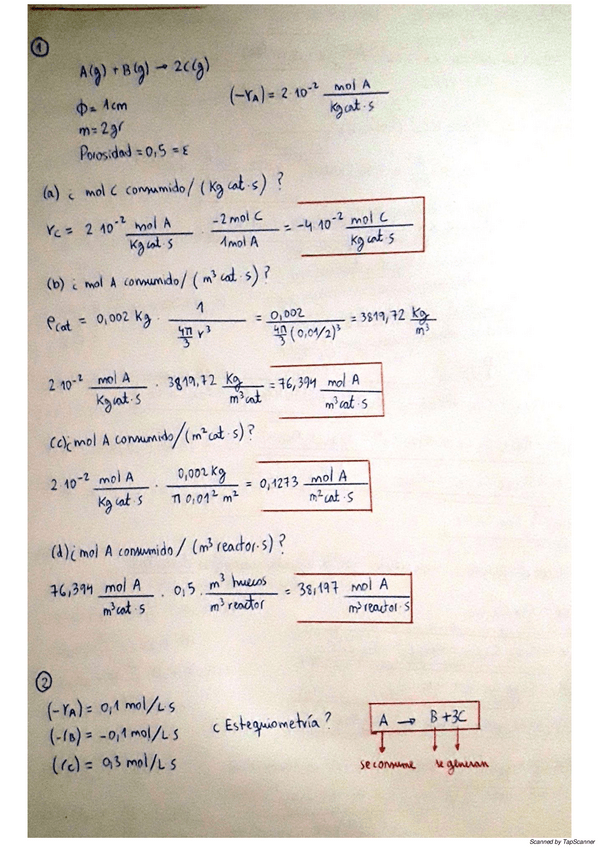 ①
A(g) + B(g) → 2C(g)
(-rA) = 2·10⁻² mol A / Kg cat·s
Φ = 1cm
m = 2gr
Porosidad = 0,5 = ε
(a) ¿ mol C consumido/(Kg cat·s) ?
rC = 2 10⁻² mol A / Kg cat·s · -2 mol C / 1 mol A = -4·10⁻² mol C / Kg cat·s
(b) ¿ mol A consumido/(m³ cat·s) ?
ρcat = 0,002 Kg · 1 / (4π/3 r³) = 0,002 / (4π/3 (0,01/2)³) = 3819,72 Kg / m³
2 10⁻² mol A / Kg cat·s · 3819,72 Kg / m³ cat = 76,394 mol A / m³ cat·s
(c) ¿ mol A consumido/(m² cat·s) ?
2 10⁻² mol A / Kg cat·s · 0,002 Kg / π 0,01² m² = 0,1273 mol A / m² cat·s
(d) ¿ mol A consumido/(m³ reactor·s) ?
76,394 mol A / m³ cat·s · 0,5 · m³ huecos / m³ reactor = 38,197 mol A / m³ reactor·s
②
(-rA) = 0,1 mol/L s
(-rB) = -0,1 mol/L s
(rC) = 0,3 mol/L s
¿ Estequiometría ?
A → B + 3C
se consume se generan
Scanned by TapScanner